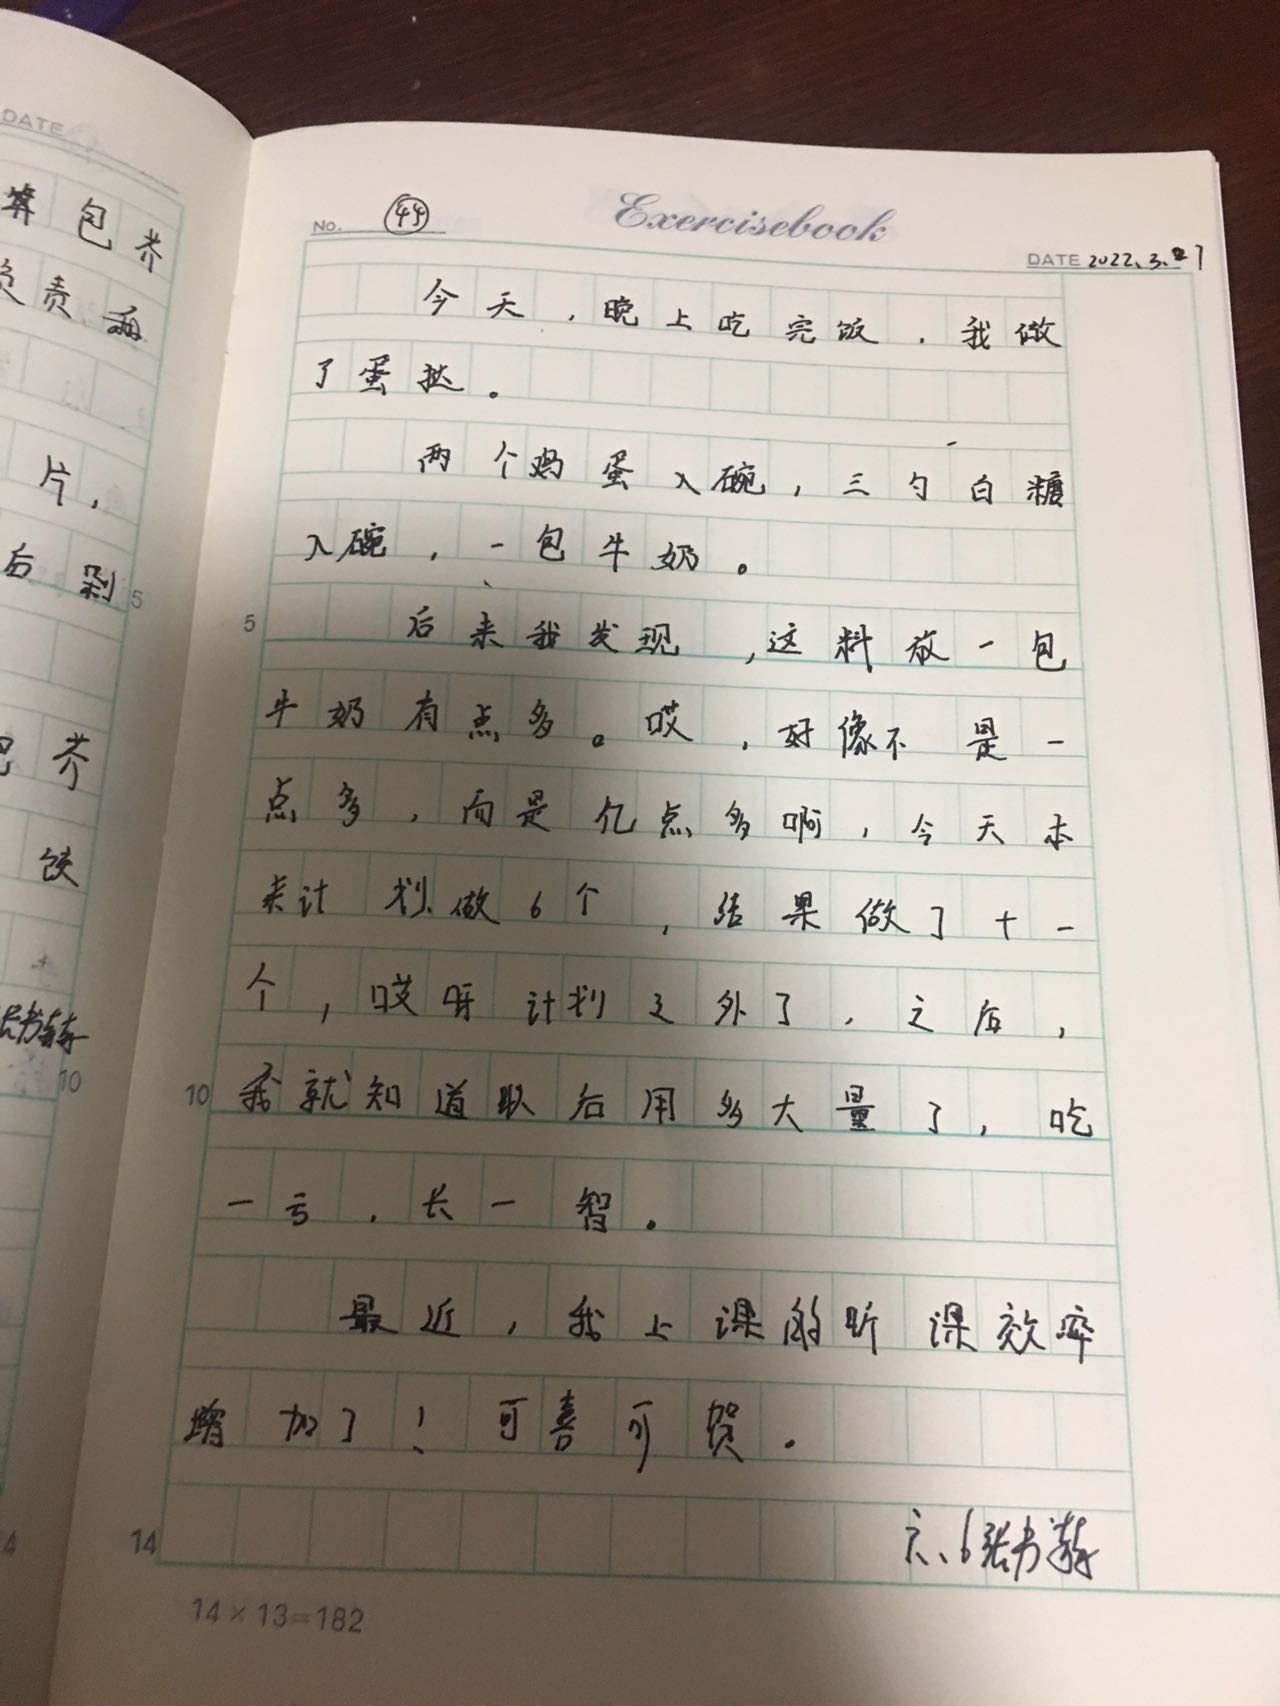 DATE
算包芥
负责和
片，
后剁
5
芥
饺
10
4
No. 44
Exercisebook
DATE 2022.3.7
今天，晚上吃完饭，我做
了蛋挞。
两个鸡蛋入碗，三勺白糖
入碗，一包牛奶。
5 后来我发现，这料放一包
牛奶有点多。哎，好像不是一
点多，而是亿点多啊，今天本
来计划做6个，结果做了十一
个，哎呀计划之外了，之后，
10 我就知道取后用多大量了，吃
一亏，长一智。
最近，我上课的听课效率
增加了！可喜可贺。
14 六、6张书
14×13=182